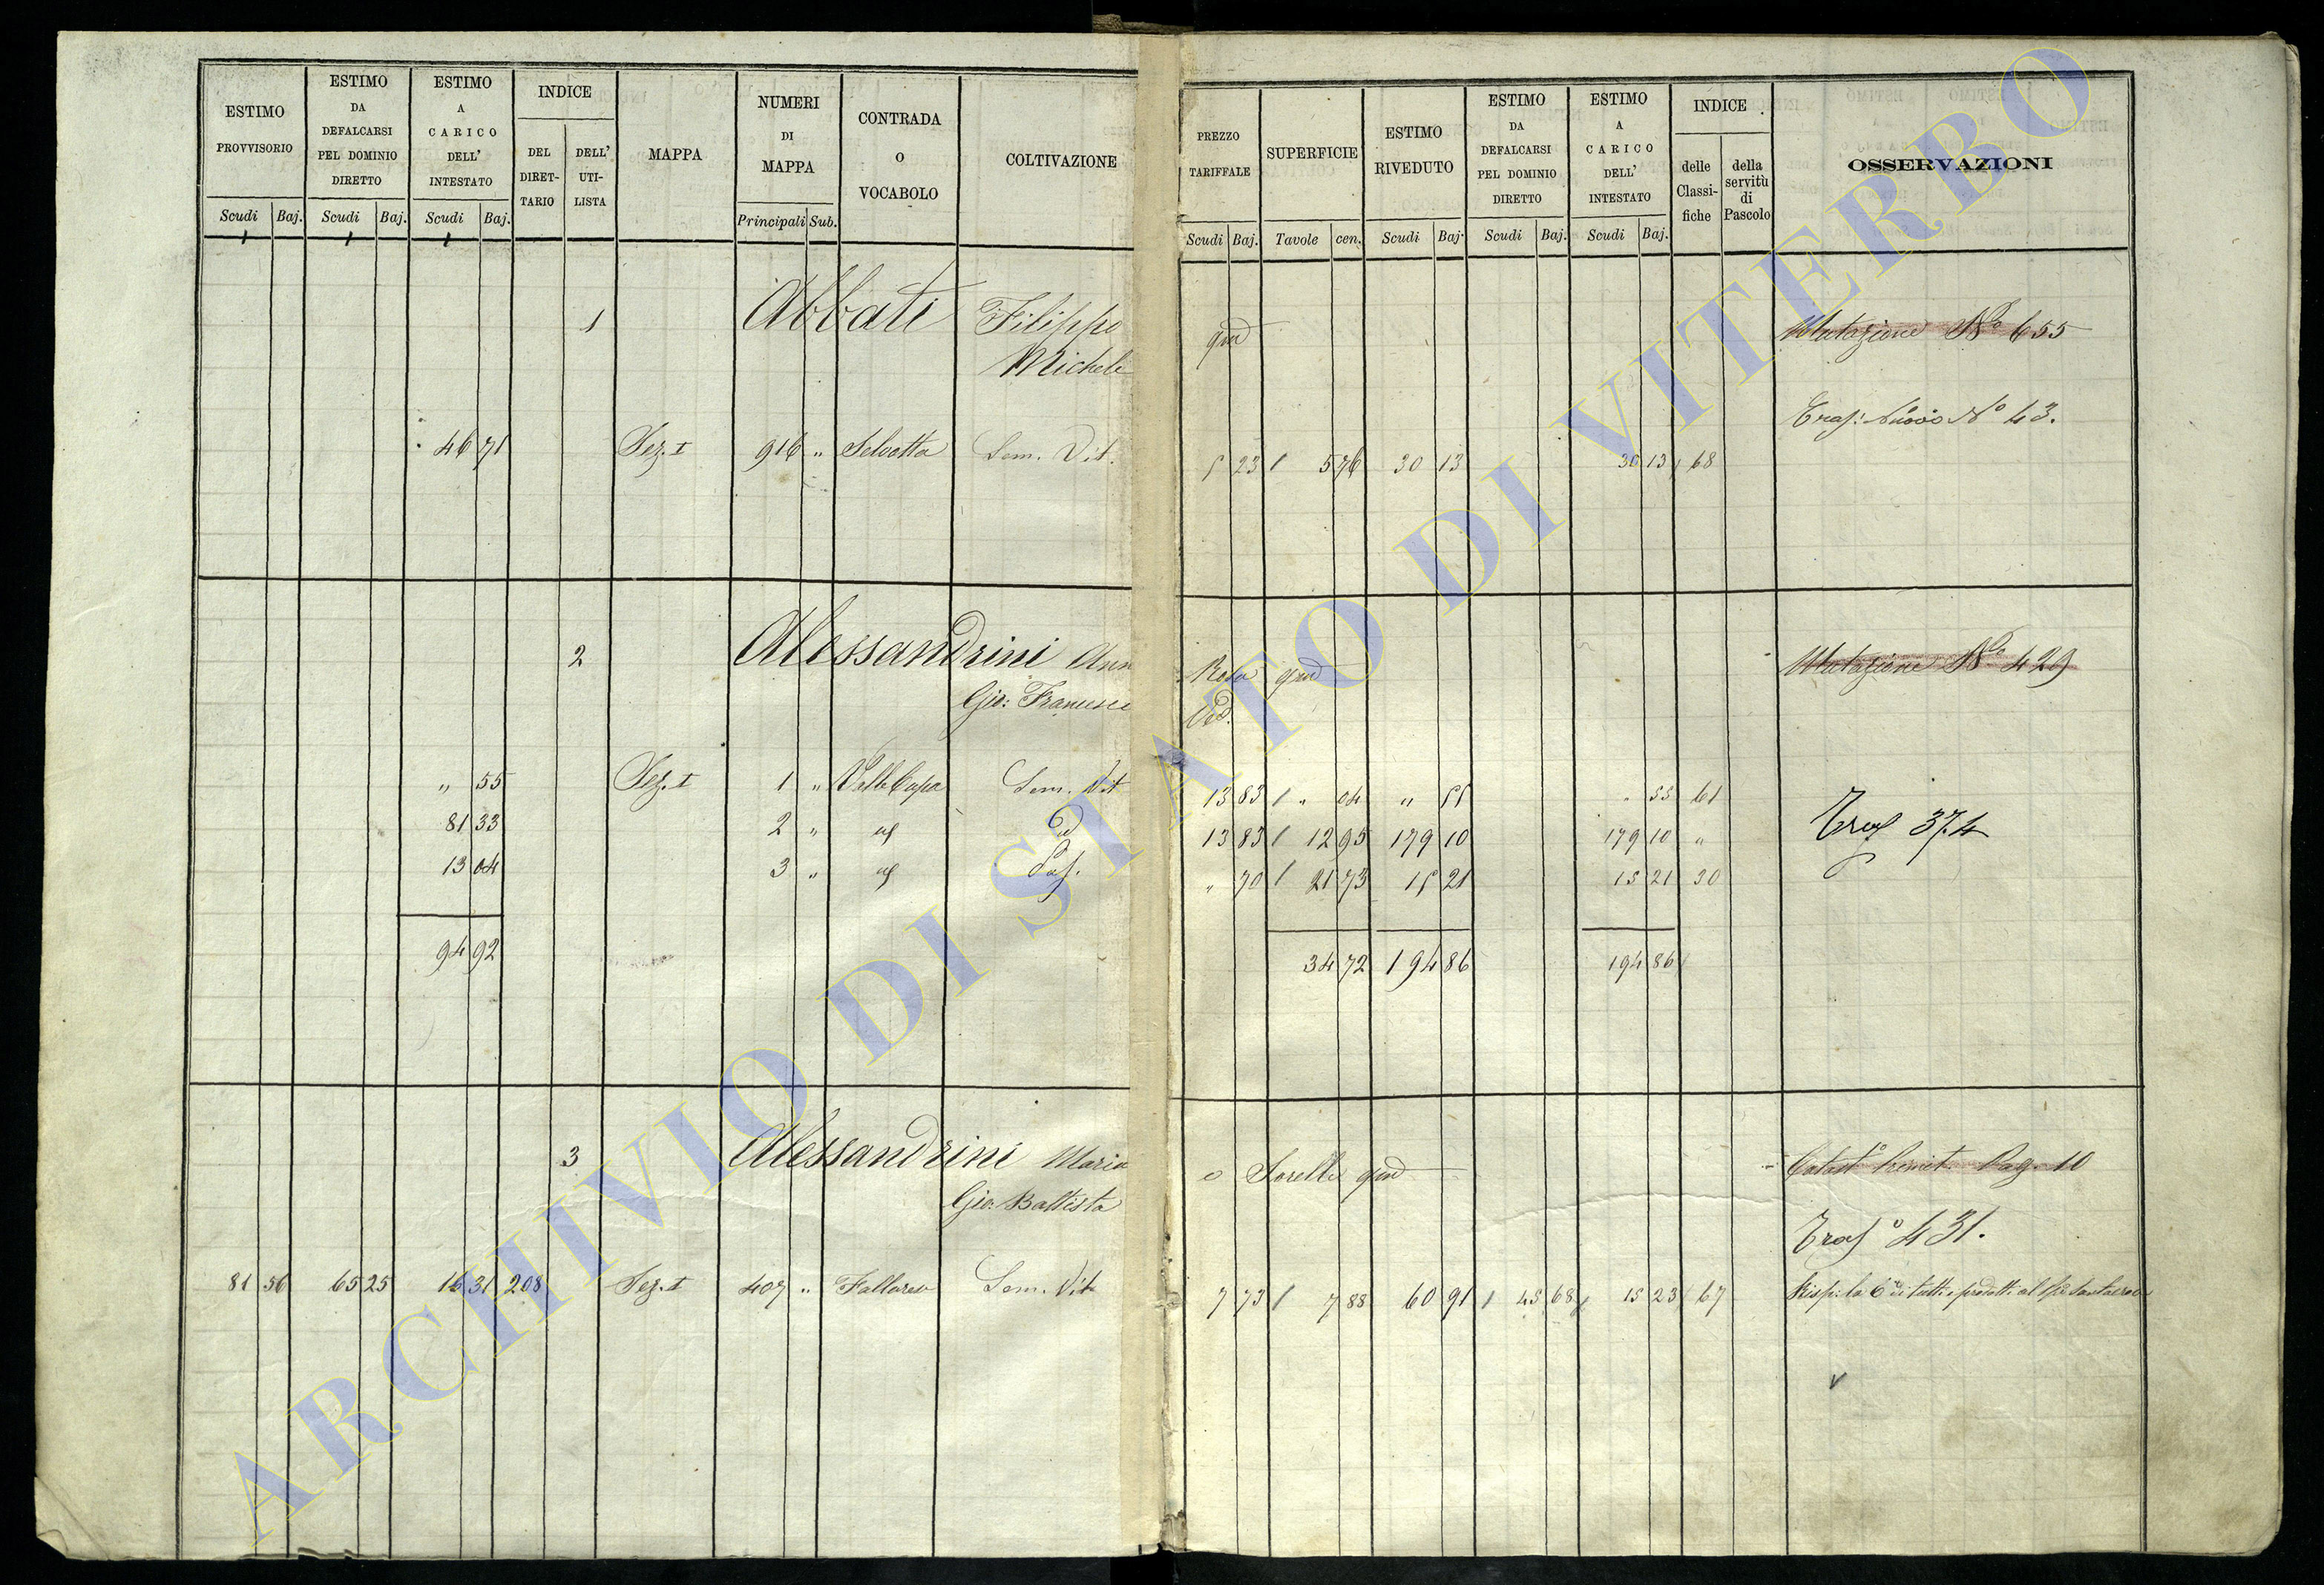 ESTIMO PROVVISORIO
Scudi Baj.
ESTIMO DA DEFALCARSI PEL DOMINIO DIRETTO
Scudi Baj.
ESTIMO A CARICO DELL' INTESTATO
Scudi Baj.
INDICE
DEL DIRET-TARIO
DELL' UTI-LISTA
MAPPA
NUMERI DI MAPPA
Principali Sub.
CONTRADA O VOCABOLO
COLTIVAZIONE
PREZZO TARIFFALE
Scudi Baj.
SUPERFICIE
Tavole cen.
ESTIMO RIVEDUTO
Scudi Baj.
ESTIMO DA DEFALCARSI PEL DOMINIO DIRETTO
Scudi Baj.
ESTIMO A CARICO DELL' INTESTATO
Scudi Baj.
INDICE
delle Classi-fiche
della servitù di Pascolo
OSSERVAZIONI
1 Abbati Filippo qm Mutazione No 655
Michele
Tras: Nuovo No 43.
46 71 Sez. I 916 " Selvotta Sem. Vit. 5 23 5 76 30 13 30 13 68
2 Alessandrini Ann Rosa qm Mutazione No 429
Gio: Francesco Ved.
" 55 Sez. I 1 " Valle Cupa Sem. Vit 13 83 " 04 " 55 " 55 61
81 33 2 " id 13 83 12 95 179 10 179 10 " Tras 374
13 04 3 " Pas. " 70 21 73 15 21 15 21 30
94 92 34 72 194 86 194 86
3 Alessandrini Maria e Sorelle qm Pag. 10
Gio: Battista
Tras 431.
81 56 65 25 16 31 208 Sez. I 407 " Sem. Vit 7 73 7 88 60 91 45 68 15 23 67
ARCHIVIO DI STATO DI VITERBO